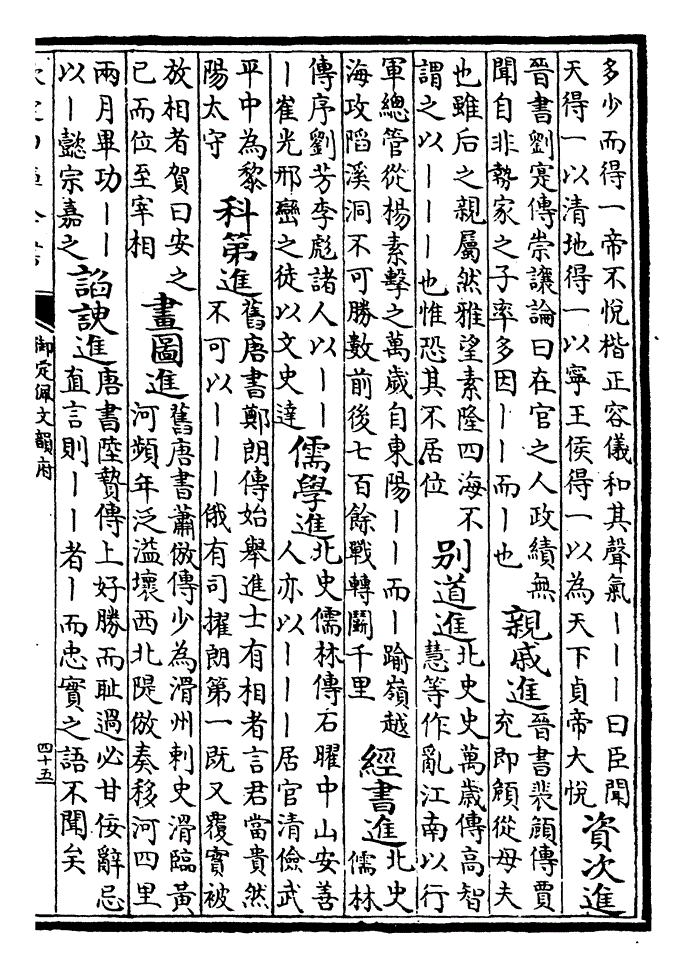 多少而得一帝不悅楷正容儀和其聲氣丨丨丨曰臣聞
天得一以清地得一以寧王侯得一以為天下貞帝大悅
資次進
晉書劉寔傳崇讓論曰在官之人政績無
聞自非勢家之子率多因丨丨而丨也
親戚進
晉書裴頠傳賈
充即頠從母夫
也雖后之親屬然雅望素隆四海不
謂之以丨丨丨也惟恐其不居位
別道進
北史史萬歲傳高智
慧等作亂江南以行
軍總管從楊素擊之萬歲自東陽丨丨而丨踰嶺越
海攻陷溪洞不可勝數前後七百餘戰轉鬬千里
經書進
北史
儒林
傳序劉芳李彪諸人以丨丨
丨崔光邢巒之徒以文史達
儒學進
北史儒林傳石曜中山安善
人亦以丨丨丨居官清儉武
平中為黎
陽太守
科第進
舊唐書鄭朗傳始舉進士有相者言君當貴然
不可以丨丨丨俄有司擢朗第一既又覆實被
放相者賀曰安之
已而位至宰相
畫圖進
舊唐書蕭倣傳少為滑州刺史滑臨黃
河頻年泛溢壞西北隄倣奏移河四里
兩月畢功丨丨
以丨懿宗嘉之
諂諛進
唐書陸贄傳上好勝而恥過必甘佞辭忌
直言則丨丨者丨而忠實之語不聞矣
御定佩文韻府
四十五